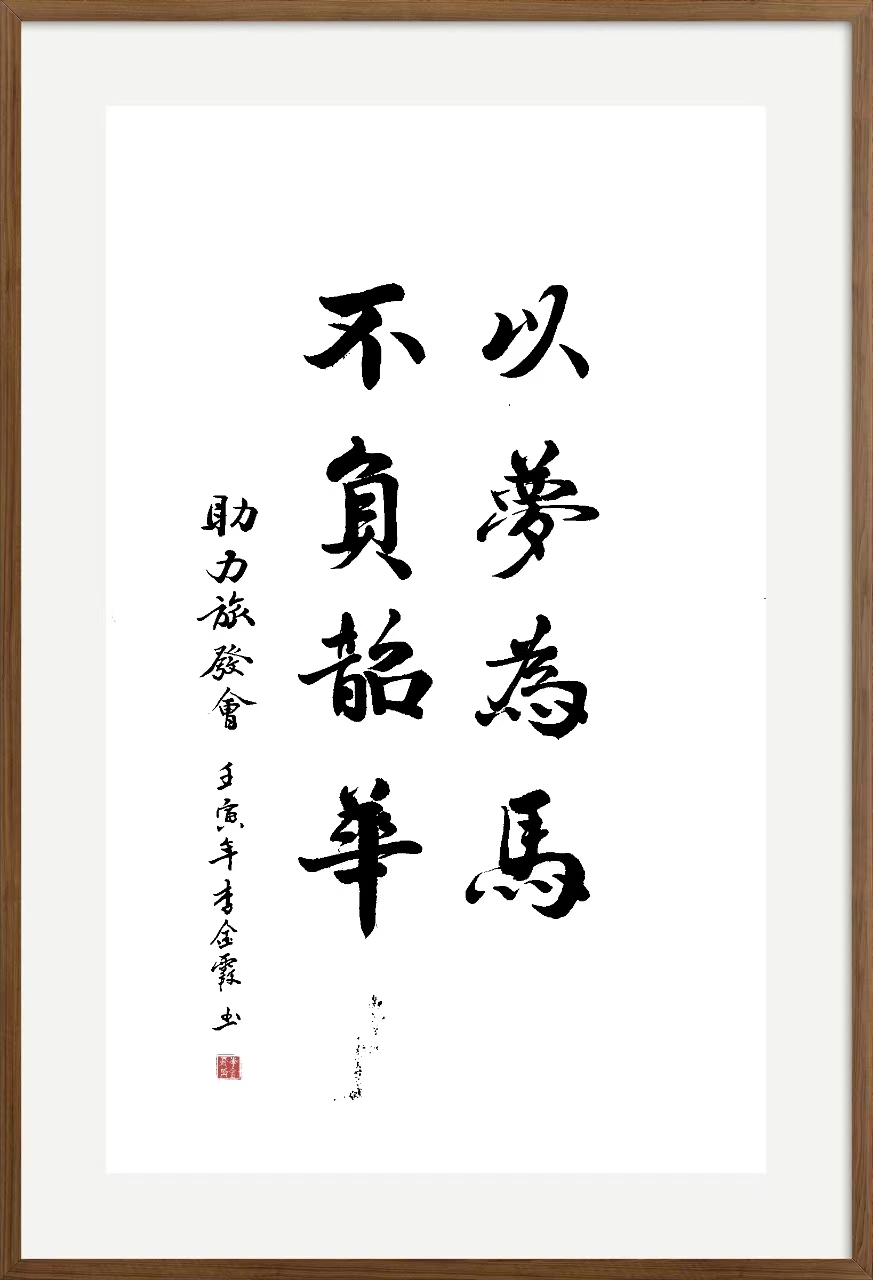 以夢為馬
不負韶華
助力旅發會 壬寅年李金霞书